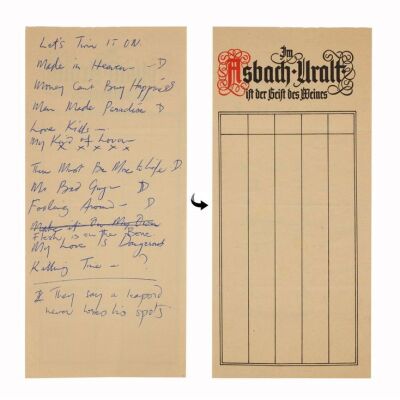 Let's Turn IT ON.
Made in Heaven - D
Money Can't Buy Happiness
Man Made Paradise D
Love Kills -
My Kind of Lover
x x x x x
There Must Be More to Life D
Mr Bad Guy - D
Fooling Around - D
Flesh is on the Bone
My Love Is Dangerous
Killing Time - ?
They say a leapord
never loses his spots
Im
Asbach-Uralt
ist der Geist des Weines